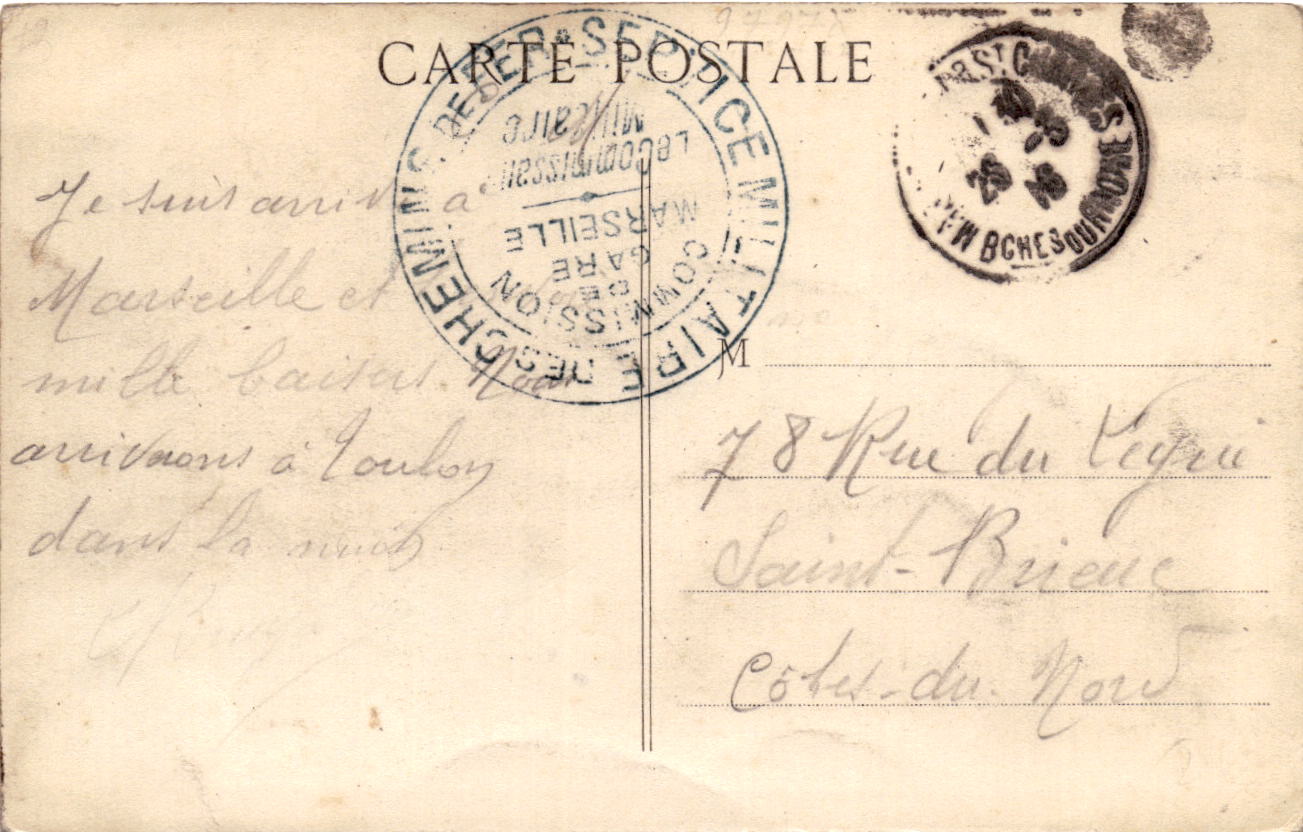 CARTE POSTALE
SERVICE MILITAIRE DES CHEMINS DE FER
COMMISSION
DE
GARE
MARSEILLE
Le Commissaire
Militaire
Je suis arrivé à
Marseille et
mille baisers. Nous
arriverons à Toulon
dans la nuit
M
78 Rue du
Saint-Brieuc
Côtes-du-Nord